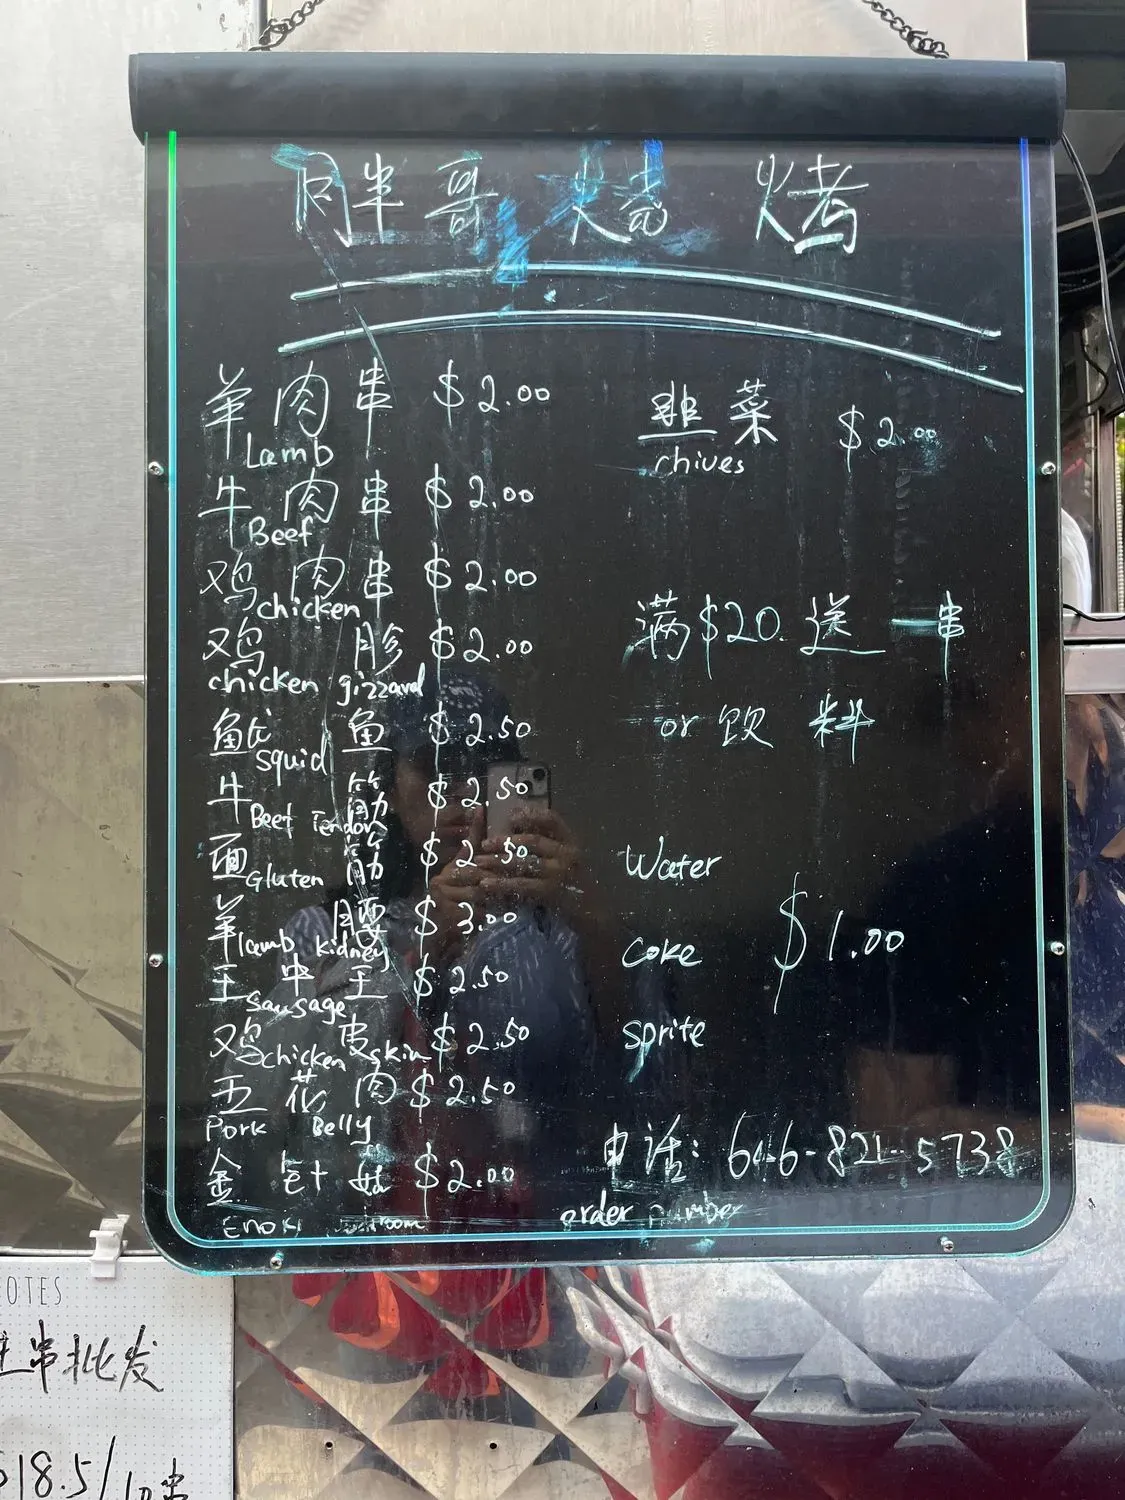 胖哥烧烤
羊肉串 $2.00
Lamb
牛肉串 $2.00
Beef
鸡肉串 $2.00
chicken
鸡胗 $2.00
chicken gizzard
鱿鱼 $2.50
squid
牛筋 $2.50
Beef Tendon
面筋 $2.50
Gluten
羊腰 $3.00
lamb kidney
王中王 $2.50
sausage
鸡皮 $2.50
chicken skin
五花肉 $2.50
Pork Belly
金针菇 $2.00
Enoki
韭菜 $2.00
chives
满$20送一串
or 饮料
Water
Coke
$1.00
sprite
电话: 646-821-5738
order number
NOTES
串批发
18.5/10串